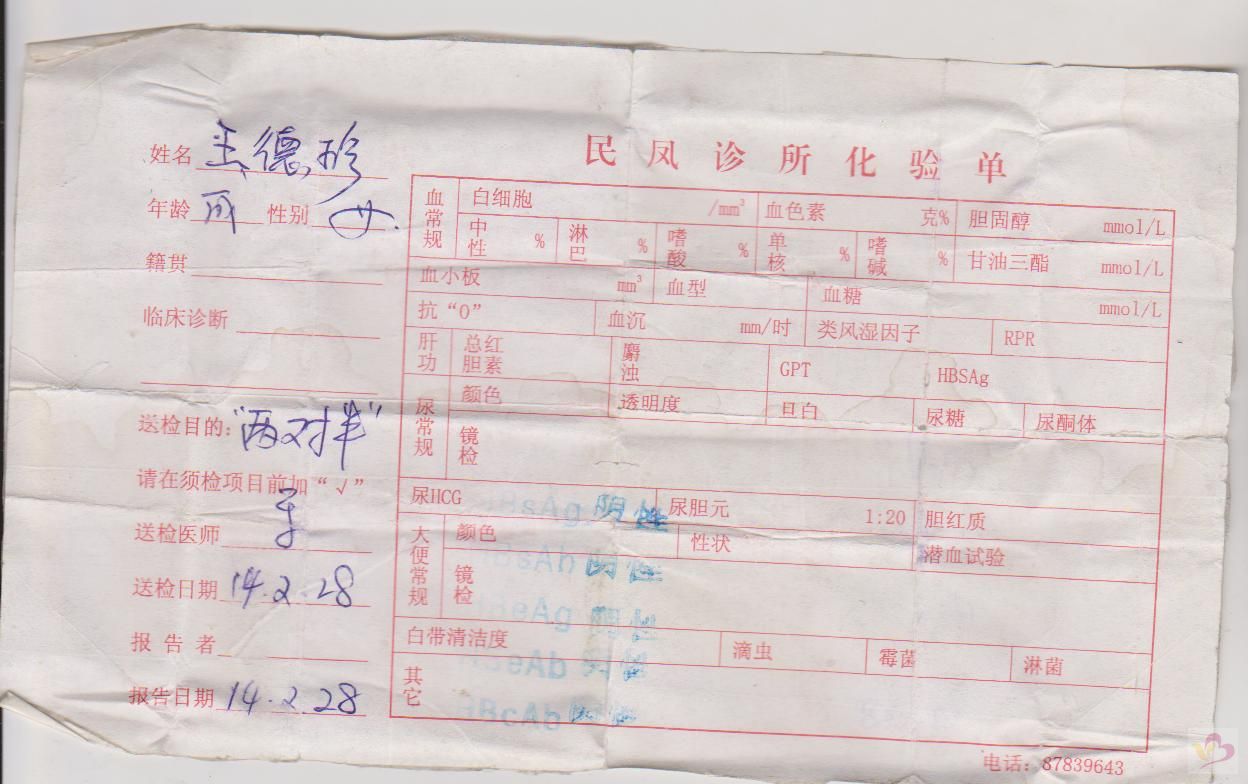 民凤诊所化验单
姓名 王德珍
年龄 成 性别 女
籍贯
临床诊断
送检目的:"两对半"
请在须检项目前加“√”
送检医师
送检日期 14.2.28
报告者
报告日期 14.2.28
血常规 白细胞 /mm³ 血色素 克% 胆固醇 mmol/L
中性 % 淋巴 % 嗜酸 % 单核 % 嗜碱 % 甘油三酯 mmol/L
血小板 mm³ 血型 血糖 mmol/L
抗“O” 血沉 mm/时 类风湿因子 RPR
肝功 总红胆素 麝浊 GPT HBSAg
尿常规 颜色 透明度 旦白 尿糖 尿酮体
镜检
尿HCG 尿胆元 1:20 胆红质
HBsAg 阴性
大便常规 颜色 性状 潜血试验
HBsAb 阴性
镜检
HBeAg 阴性
白带清洁度 滴虫 霉菌 淋菌
HBeAb
其它
HBcAb
电话:87839643